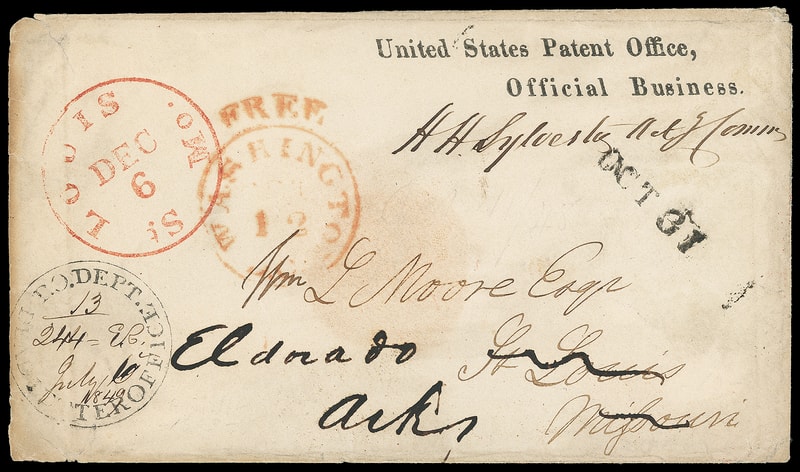 United States Patent Office,
Official Business.
H H Sylvester
St LOUIS Mo.
DEC
6
FREE
WASHINGTON
12
OCT 31
Wm L Moore Esqr
Eldorado St Louis
Arks Missouri
P.O. DEPT. LETTER OFFICE
13
244 = E.C.
July
1849